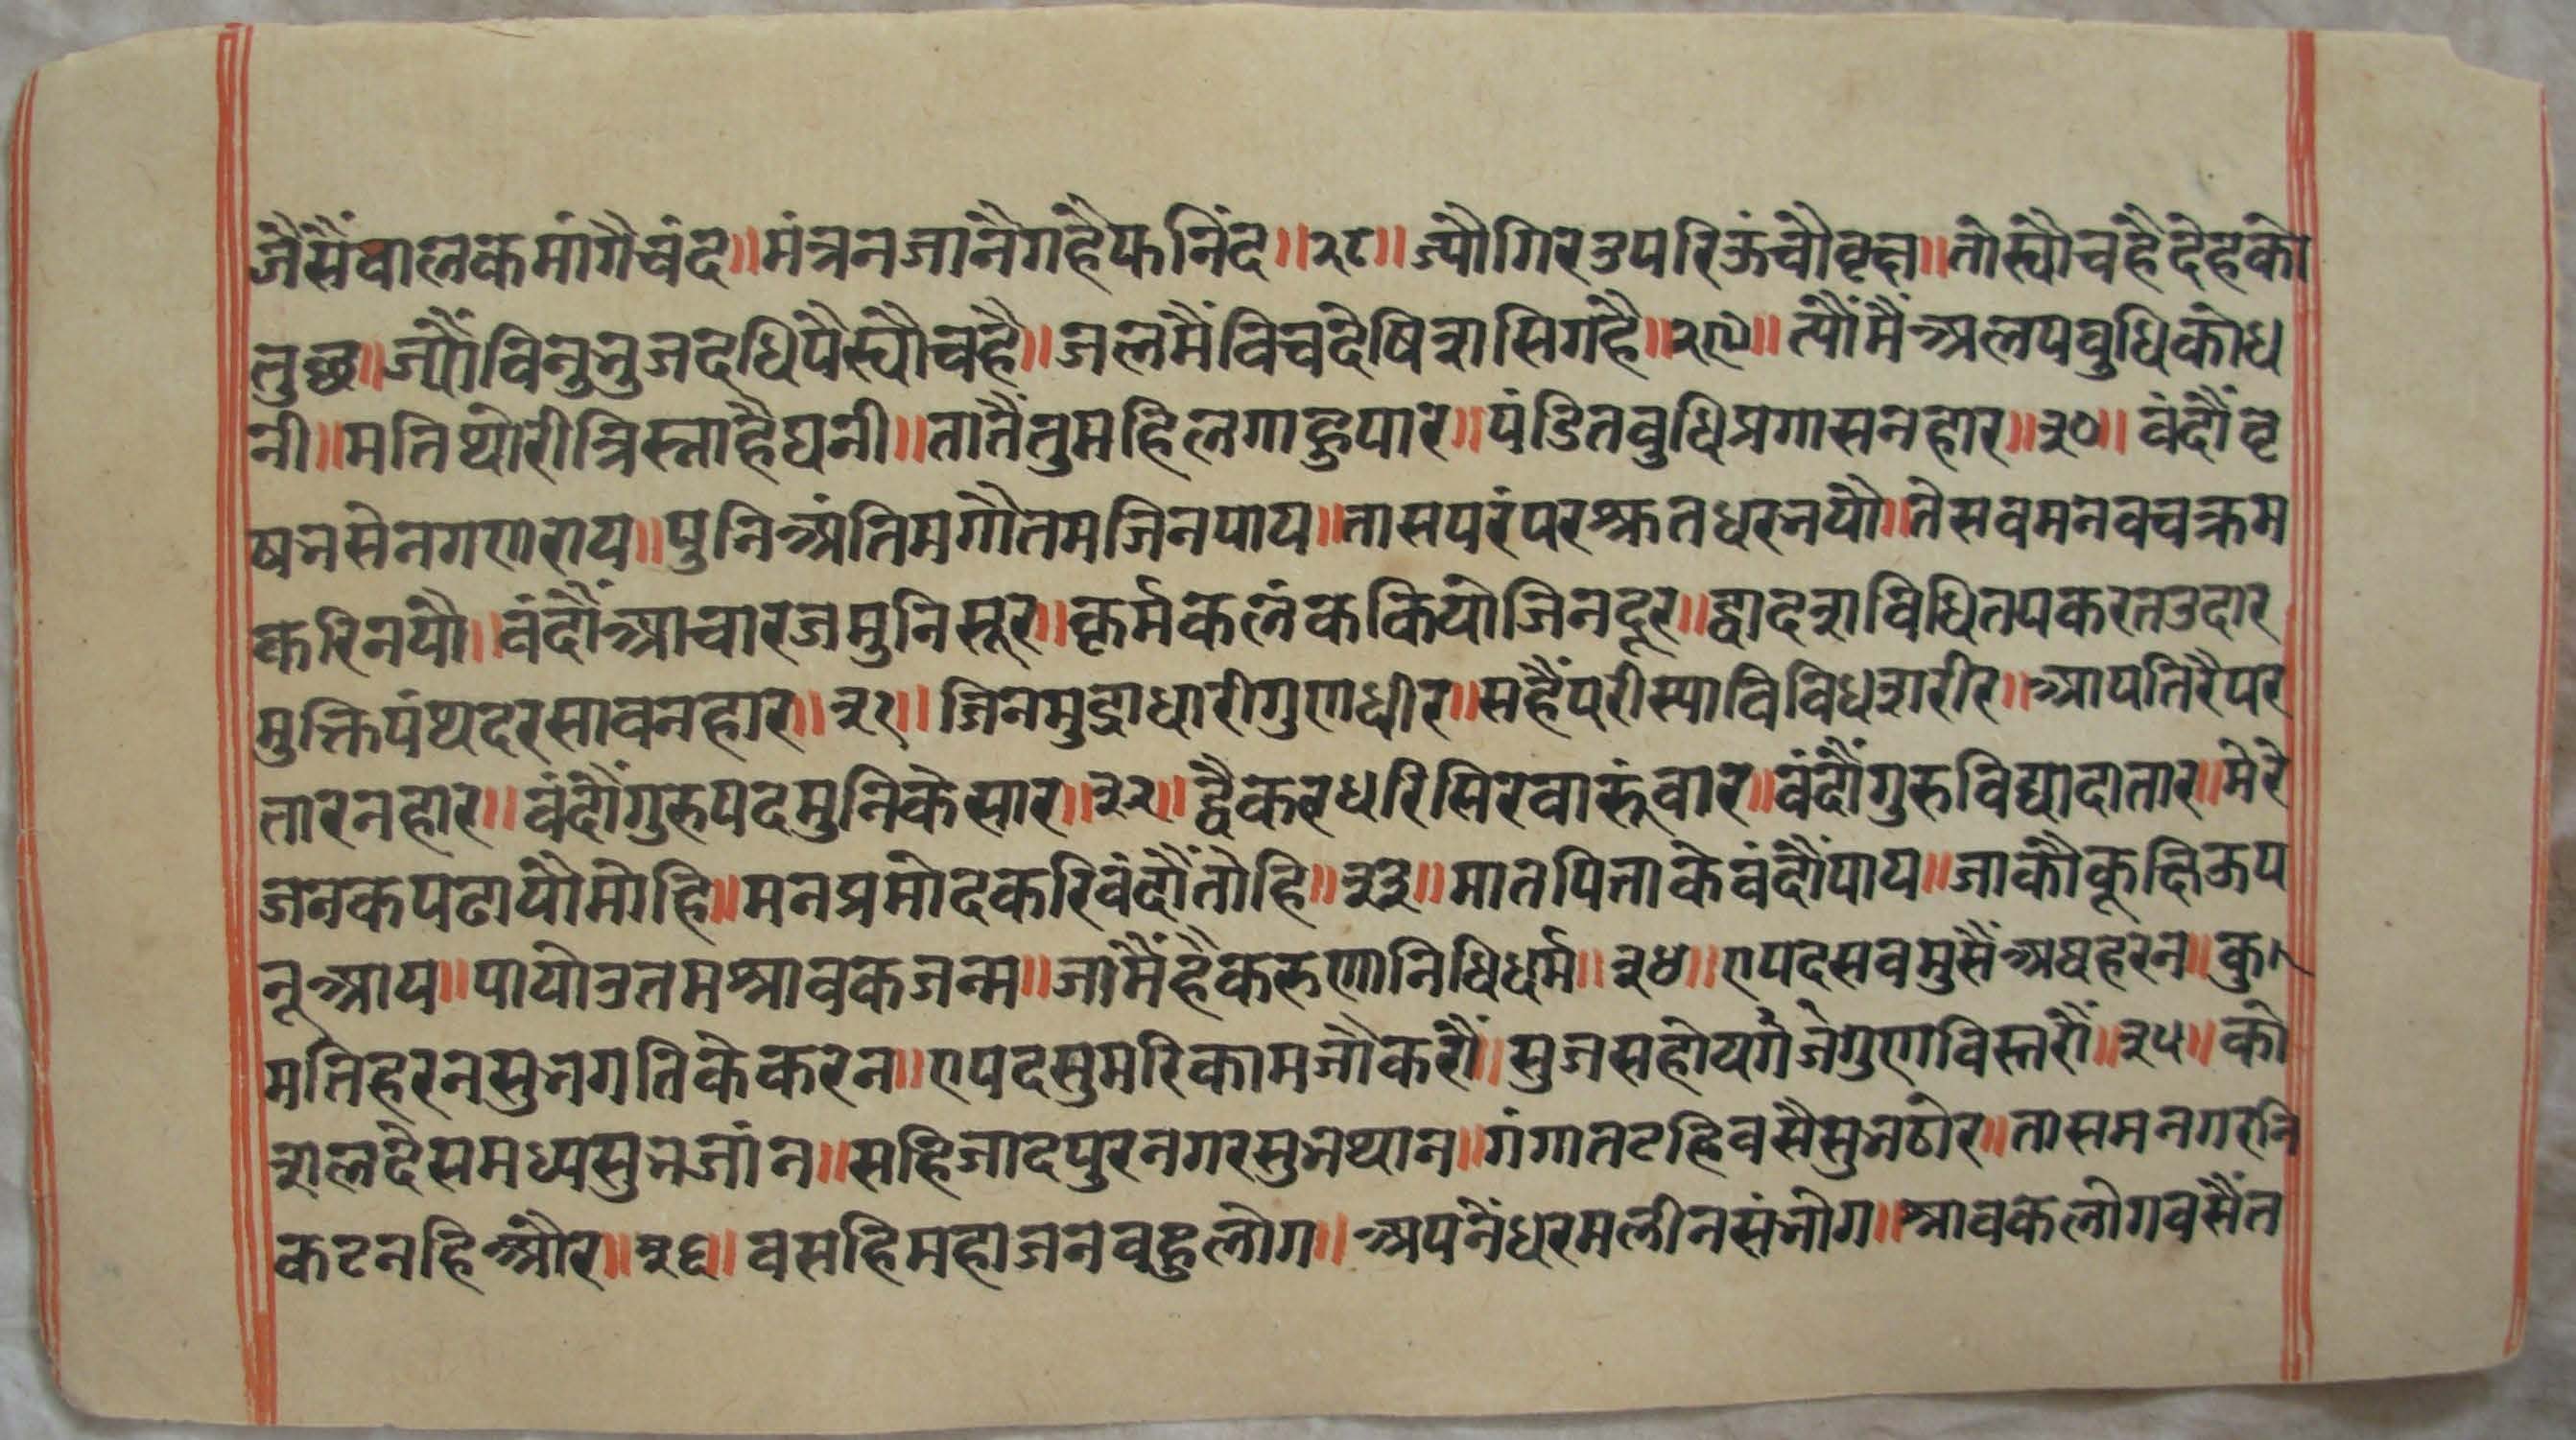 जैसैंवालकमांगैचंद॥मंत्रनजानैगहैफनिंद॥२८॥ज्यौगिरउपरिऊंचौवृक्ष॥तोस्यौचहैदेहको
तुछ॥ज्यौंविनुभुजदधिपैस्यौचहै॥जलमैंविचदेषिशसिगहै॥२९॥त्यौंमैंअलपवुधिकोध
नी॥मतिथोरीत्रिस्नाहैघनी॥तातैंतुमहिलगाहुपार॥पंडितवुधिप्रगासनहार॥३०॥वंदौंवृ
षभसेनगणराय॥पुनिअंतिमगौतमजिनपाय॥तासपरंपरश्रुतधरभयौ॥तेसवमनवचक्रम
करिनयौ॥वंदौंआचारजमुनिसूर॥कर्मकलंककियोजिनदूर॥द्वादशविधितपकरतउदार
मुक्तिपंथदरसावनहार॥३१॥जिनमुद्राधारीगुणधीर॥सहैंपरीस्याविविधशरीर॥आपतिरैपर
तारनहार॥वंदौंगुरुपदमुनिकेसार॥३२॥द्वैकरधरिसिरवारुंवार॥वंदौंगुरुविद्यादातार॥मेरे
जनकपढायौमोहि॥मनप्रमोदकरिवंदौंतोहि॥३३॥मातपिताकेवंदौंपाय॥जाकौकूक्षिऊप
नूआय॥पायोउतमश्रावकजन्म॥जामैंहैकरुणानिधिधर्म॥३४॥एपदसवमुसैंअघहरन॥कु
मतिहरनसुभगतिकेकरन॥एपदसुमरिकामजौकरौं॥सुजसहोयगंजेगुणविस्तरौं॥३५॥को
शलदेसमध्यसुभजांन॥सहिजादपुरनगरसुभथान॥गंगातटहिवसैसुभठोर॥तासमनगरनि
कटनहिऔर॥३६॥वसहिमहाजनवहुलोग॥अपनेंधरमलीनसंभोग॥श्रावकलोगवसैंत